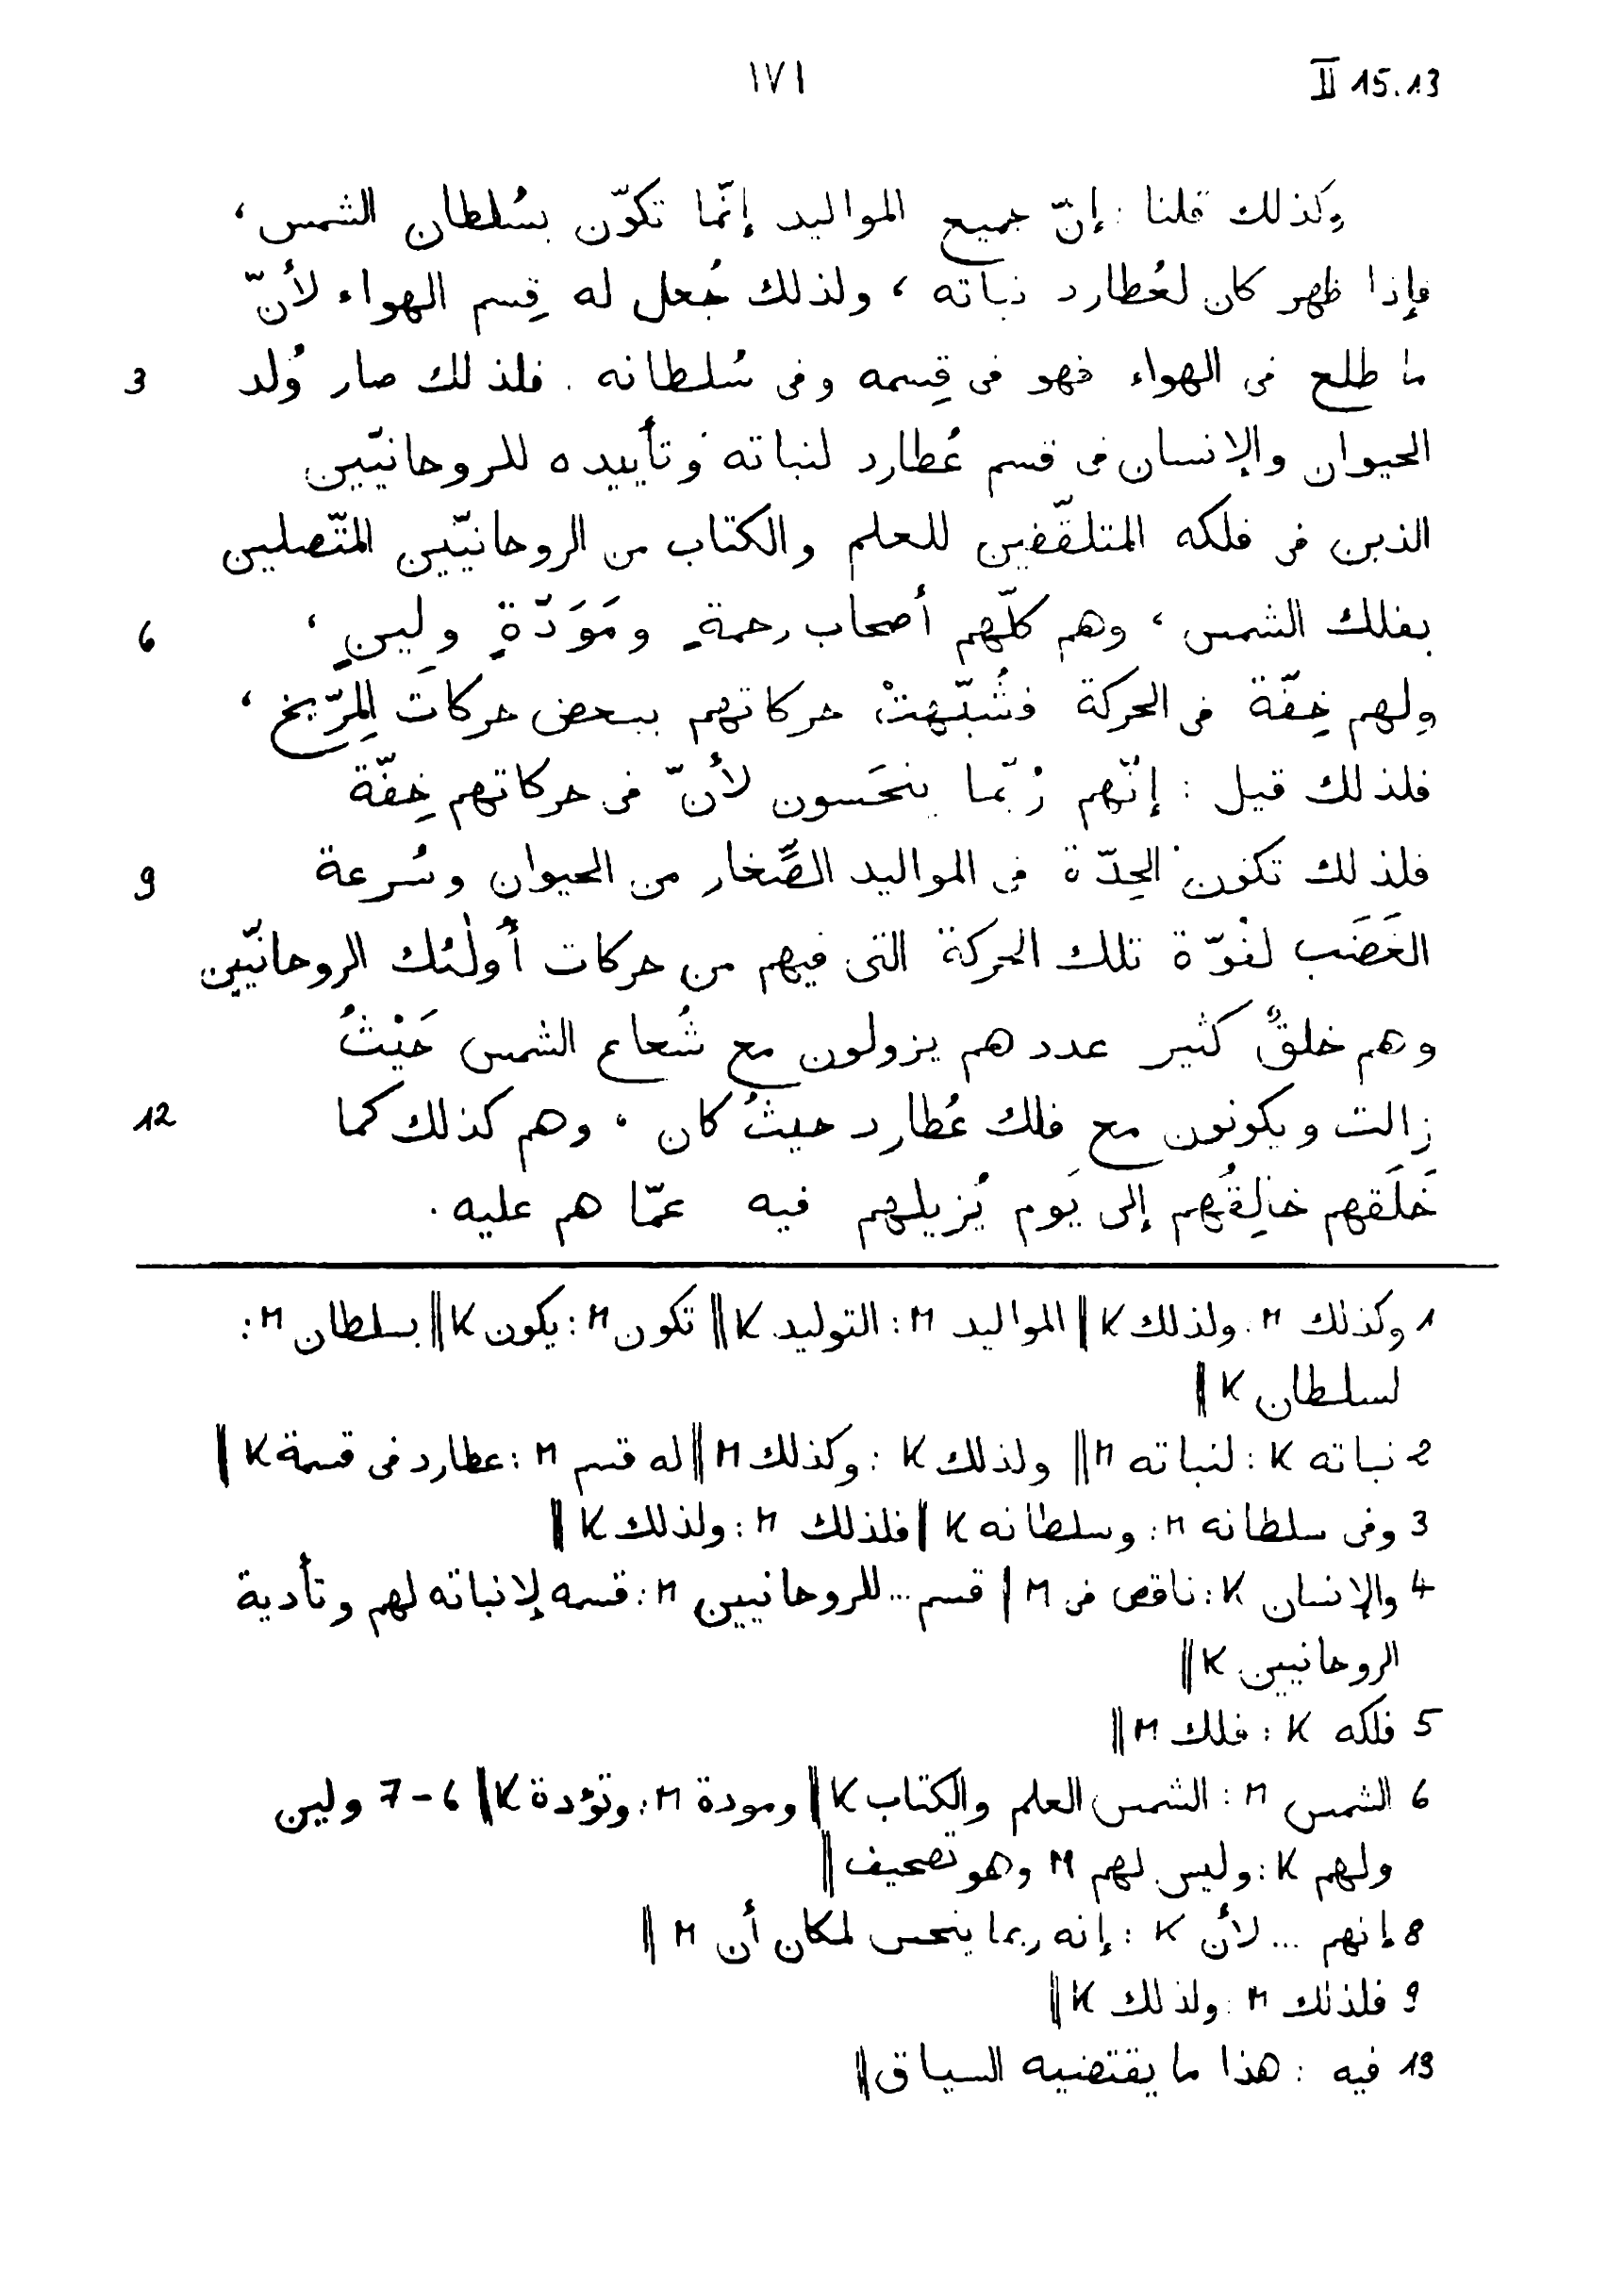 II 15.13
١٧١
وكذلك قلنا : إنّ جميع المواليد إنّما تكوّن بسُلطان الشمس ،
فإذا ظهر كان لعُطارد نباته ، ولذلك جُعل له قِسم الهواء لأنّ
ما طلع فى الهواء فهو فى قِسمه وفى سُلطانه . فلذلك صار وُلد 3
الحيوان والإنسان فى قسم عُطارد لنباته وتأييده للروحانيّين
الذين فى فلكه المتلقّفين للعلم والكتاب من الروحانيّين المتّصلين
بفلك الشمس ، وهم كلّهم أصحاب رحمةٍ ومَوَدّةٍ ولِينٍ ، 6
ولهم خِفّة فى الحركة فشُبّهتْ حركاتهم ببعض حركات المِرّيخ ،
فلذلك قيل : إنّهم رُبّما ينحَسون لأنّ فى حركاتهم خِفّة
فلذلك تكون الحِدّة فى المواليد الصِّغار من الحيوان وسُرعة 9
الغَضَب لقُوّة تلك الحركة التى فيهم من حركات أُولٰئك الروحانيّين
وهم خلقٌ كثير عددهم يزولون مع شُعاع الشمس حَيْثُ
زالت ويكونون مع فلك عُطارد حيثُ كان . وهم كذلك كما 12
خَلَقهم خالِقُهم إلى يَوم يُزيلهم فيه عمّا هم عليه .
1 وكذلك M : ولذلك K || المواليد M : التوليد K || تكون M : يكون K || بسلطان M :
لسلطان K ||
2 نباته K : لنباته M || ولذلك K : وكذلك M || له قسم M : عطارد فى قسمة K ||
3 وفى سلطانه M : وسلطانه K || فلذلك M : ولذلك K ||
4 والإنسان K : ناقص فى M || قسم ... للروحانيين M : قسمه لإنباته لهم وتأدية
الروحانيين K ||
5 فلكه K : فلك M ||
6 الشمس M : الشمس العلم والكتاب K || ومودة M : وتؤدة K || 6-7 ولين
ولهم K : وليس لهم M وهو تصحيف ||
8 إنهم ... لأن K : إنه ربما ينحس لمكان أن M ||
9 فلذلك M : ولذلك K ||
13 فيه : هذا ما يقتضيه السياق ||